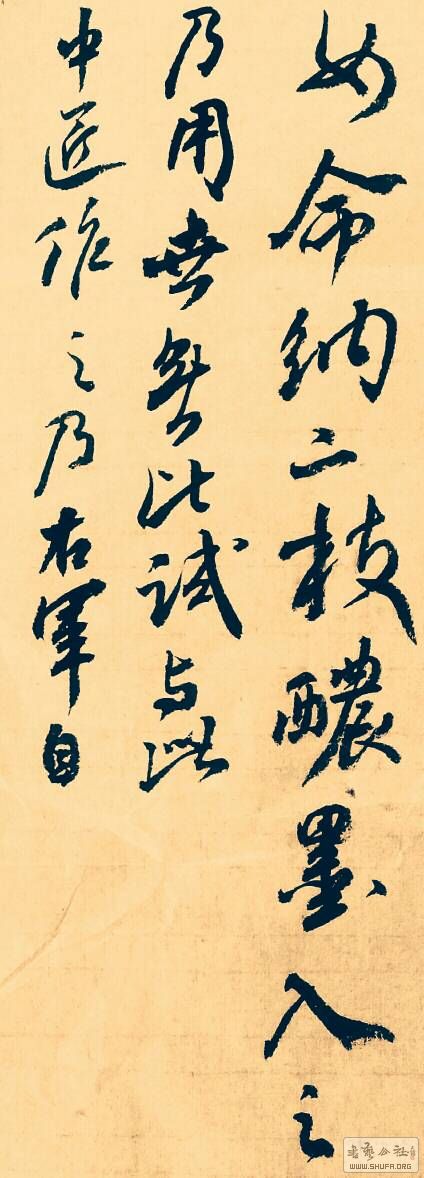 如命納二枝醲墨入之
乃用世無比試与此
中匠作之乃右軍自
書藝公社
WWW.SHUFA.ORG